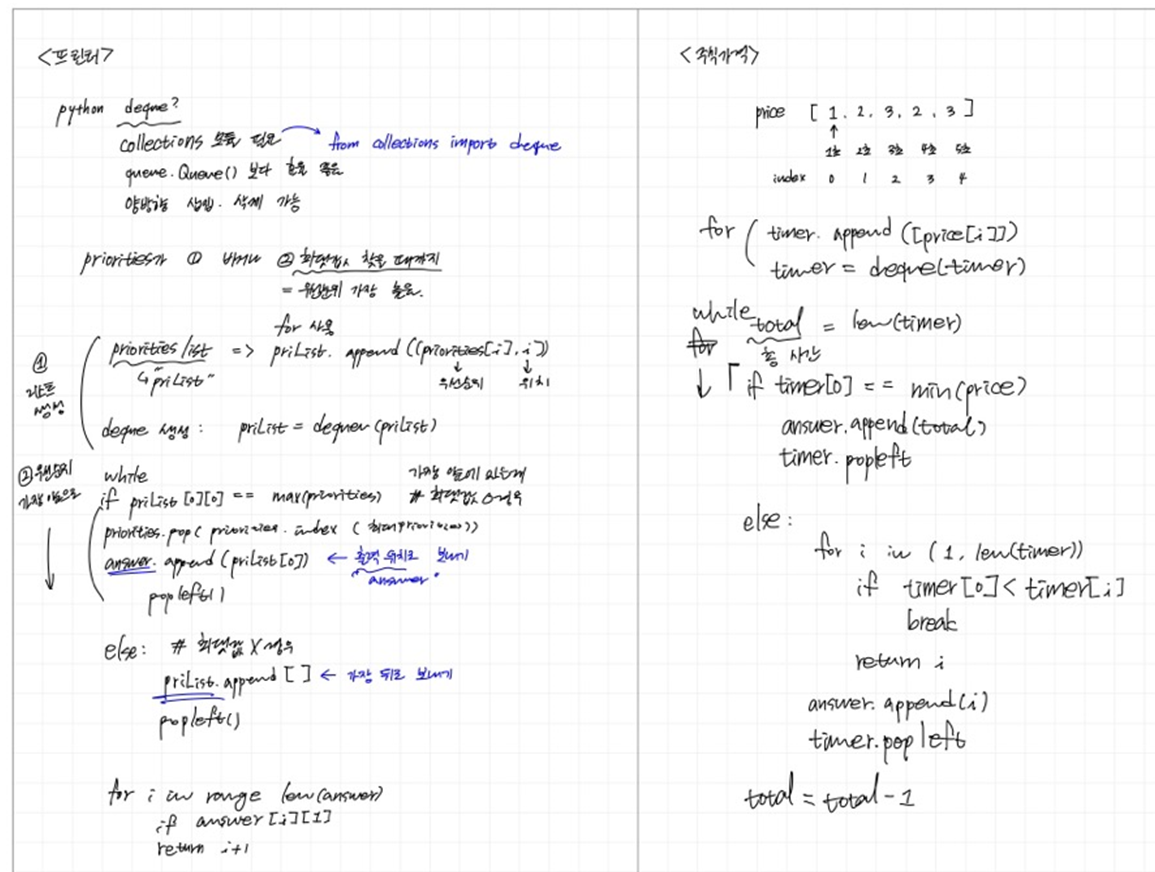 <프린터>
python deque?
collections 모듈 필요 → from collections import deque
queue.Queue() 보다 효율 좋음
양방향 삽입. 삭제 가능
priorities가 ① 바뀌니 ② 최댓값 찾을 때까지
= 우선순위 가장 높음.
for 사용
① 리스트 생성
priorities list => priList. append((priorities[i], i))
↳ "priList"
↓ 우선순위 ↓ 위치
deque 생성 : priList = dequeu(priList)
② 우선순위 가장 앞으로
while 가장 앞에 있는게
if priList[0][0] == max(priorities) # 최댓값 O 경우
priorities.pop( priorities. index (
answer. append(priList[0]) ← 출력 위치로 보내기
"answer"
popleft()
else: # 최댓값 X 경우
priList.append [ ] ← 가장 뒤로 보내기
popleft()
for i in range len(answer)
if answer[i][1]
return i+1
<주식가격>
price [ 1. 2. 3. 2. 3 ]
↑
1초 2초 3초 4초 5초
index 0 1 2 3 4
for ( timer. append ([price[i]])
timer = deque(timer)
while total = len(timer)
for
총 시간
↓ if timer[0] == min(price)
answer.append(total)
timer.popleft
else:
for i in (1, len(timer))
if timer[0] < timer[i]
break
return i
answer.append(i)
timer.popleft
total = total - 1